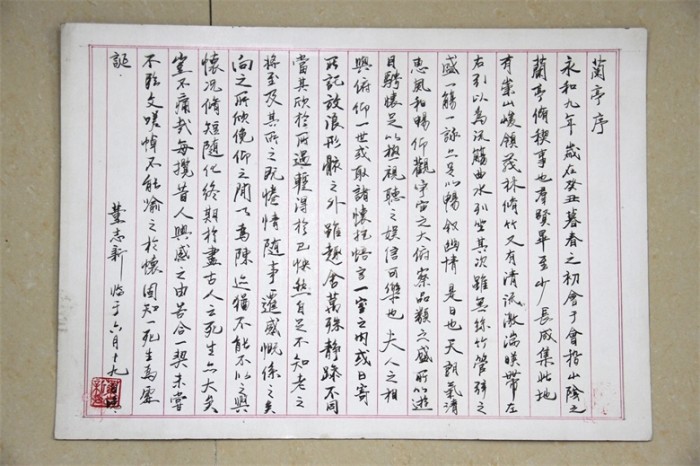 蘭亭序
永和九年歲在癸丑暮春之初會于會稽山陰之
蘭亭脩稧事也羣賢畢至少長咸集此地
有崇山峻領茂林脩竹又有清流激湍暎帶左
右引以為流觴曲水列坐其次雖無絲竹管弦之
盛一觴一詠亦足以暢敘幽情是日也天朗氣清
惠風和暢仰觀宇宙之大俯察品類之盛所以遊
目騁懷足以極視聽之娛信可樂也夫人之相
與俯仰一世或取諸懷抱悟言一室之內或日寄
所託放浪形骸之外雖趣舍萬殊靜躁不同
當其欣於所遇輕得於己快然自足不知老之
將至及其所之既惓情隨事遷感慨係之矣
向之所欣俛仰之間以為陳迹猶不能不以之興
懷況脩短隨化終期於盡古人云死生亦大矣
豈不痛哉每攬昔人興感之由若合一契未嘗
不臨文嗟悼不能喻之於懷固知一死生為虛
誕
董志新 临于六月十九